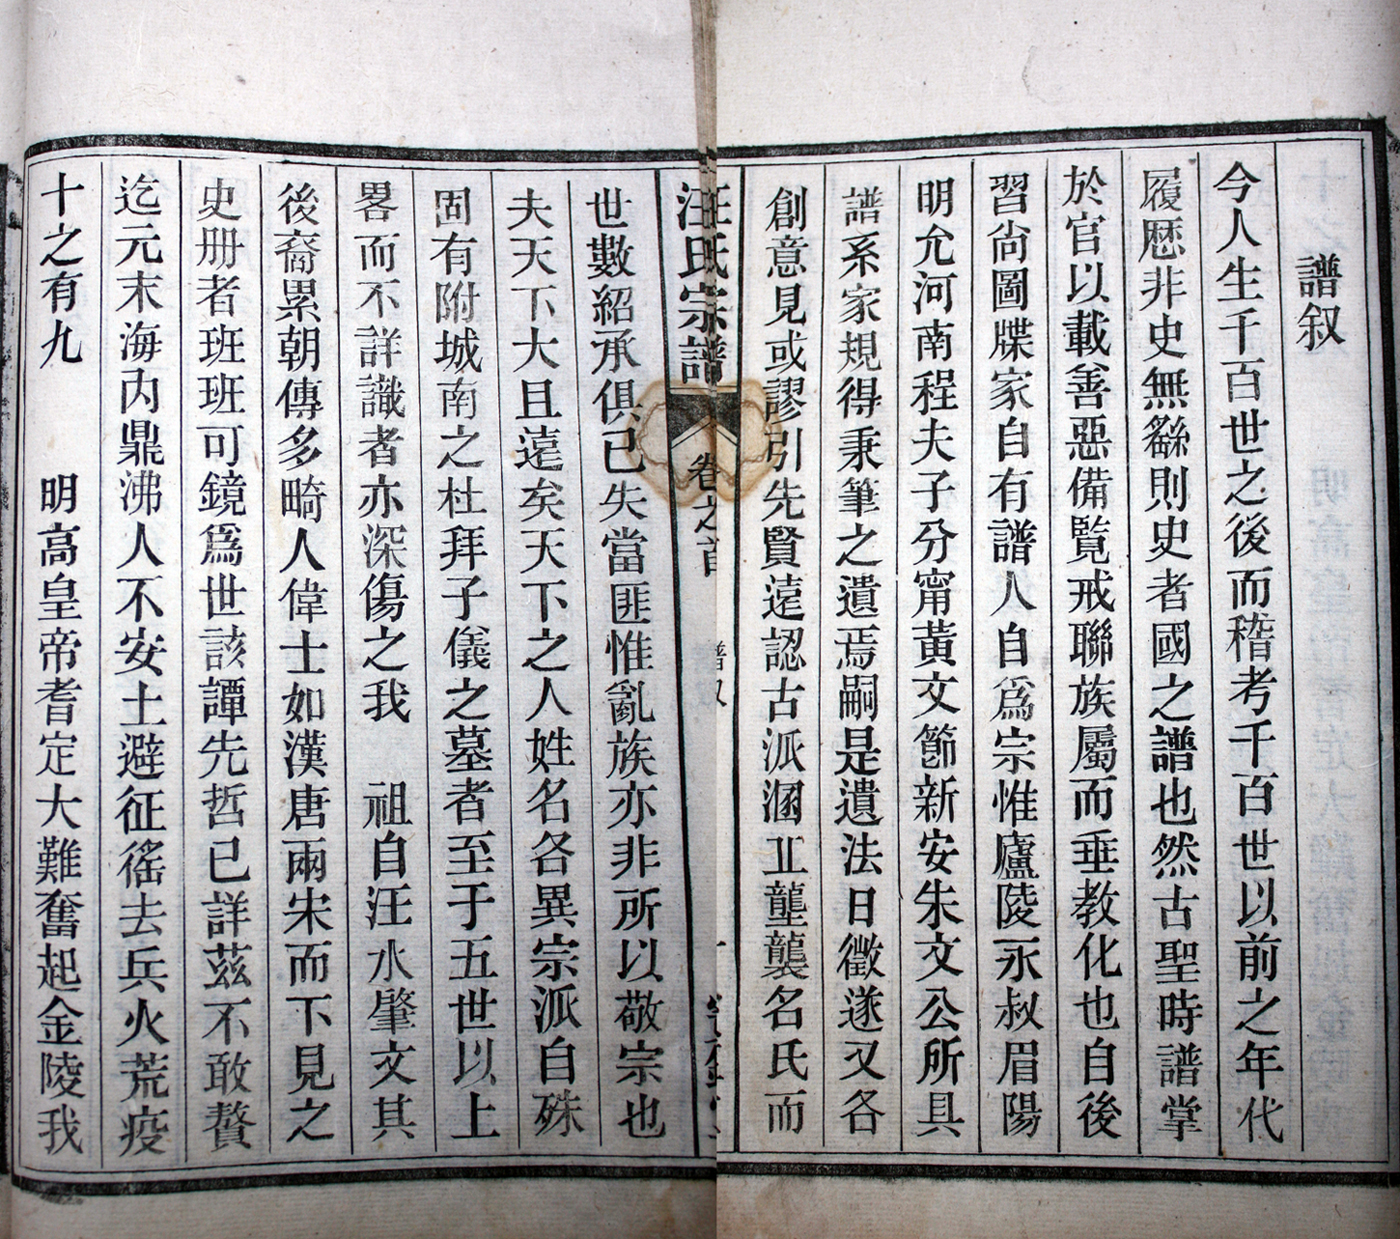 譜叙
今人生千百世之後而稽考千百世以前之年代
履歷非史無繇則史者國之譜也然古聖時譜掌
於官以載善惡備覧戒聯族屬而垂教化也自後
習尙圖牒家自有譜人自爲宗惟廬陵永叔眉陽
明允河南程夫子分甯黃文節新安朱文公所具
譜系家規得秉筆之遺焉嗣是遺法日徵遂又各
創意見或謬引先賢遠認古派溷正壟襲名氏而
汪氏宗譜 卷之首 譜叙 一
世數紹承俱已失當匪惟亂族亦非所以敬宗也
夫天下大且遠矣天下之人姓名各異宗派自殊
固有附城南之杜拜子儀之墓者至于五世以上
畧而不詳識者亦深傷之我 祖自汪水肇文其
後裔累朝傳多畸人偉士如漢唐兩宋而下見之
史册者班班可鏡爲世該譚先哲已詳茲不敢贅
迄元末海内鼎沸人不安土避征徭去兵火荒疫
十之有九 明高皇帝耆定大難奮起金陵我